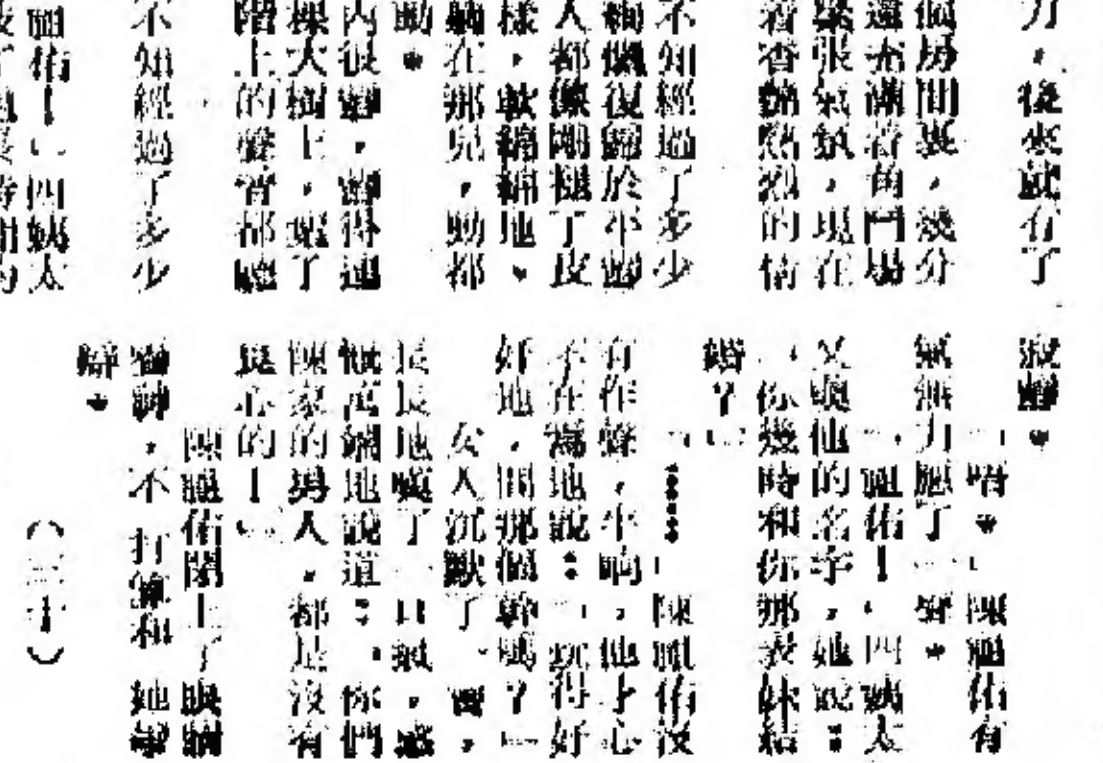 力，從來就有了
個房間裏，幾分
還充滿着角鬥場
緊張氣氛，現在
着香豔熱烈的情
不知經過了多少
復歸於平靜
人都像剛褪了皮
樣，軟綿綿地。
躺在那兒，動都
動。
內很靜，靜得連
棵大樹上，
了
階上的聲音都聽
不知經過了多少
祖佑！」四姨太
寂靜。
「唔。」陳祖佑有
氣無力應了一聲。
「祖佑！」四姨太
又喚他的名字，她說：
「你幾時和你那表妹結
婚？」
「……」陳祖佑沒
有作聲，半晌，他才心
不在焉地說：「玩得好
好地，問那個幹嗎？」
女人沉默了一會，
長長地嘆了一口氣，感
慨萬端地說道：「你們
陳家的男人，都是沒有
良心的！」
陳祖佑閉上了眼睛
，不打算和她
辯。
（三十）